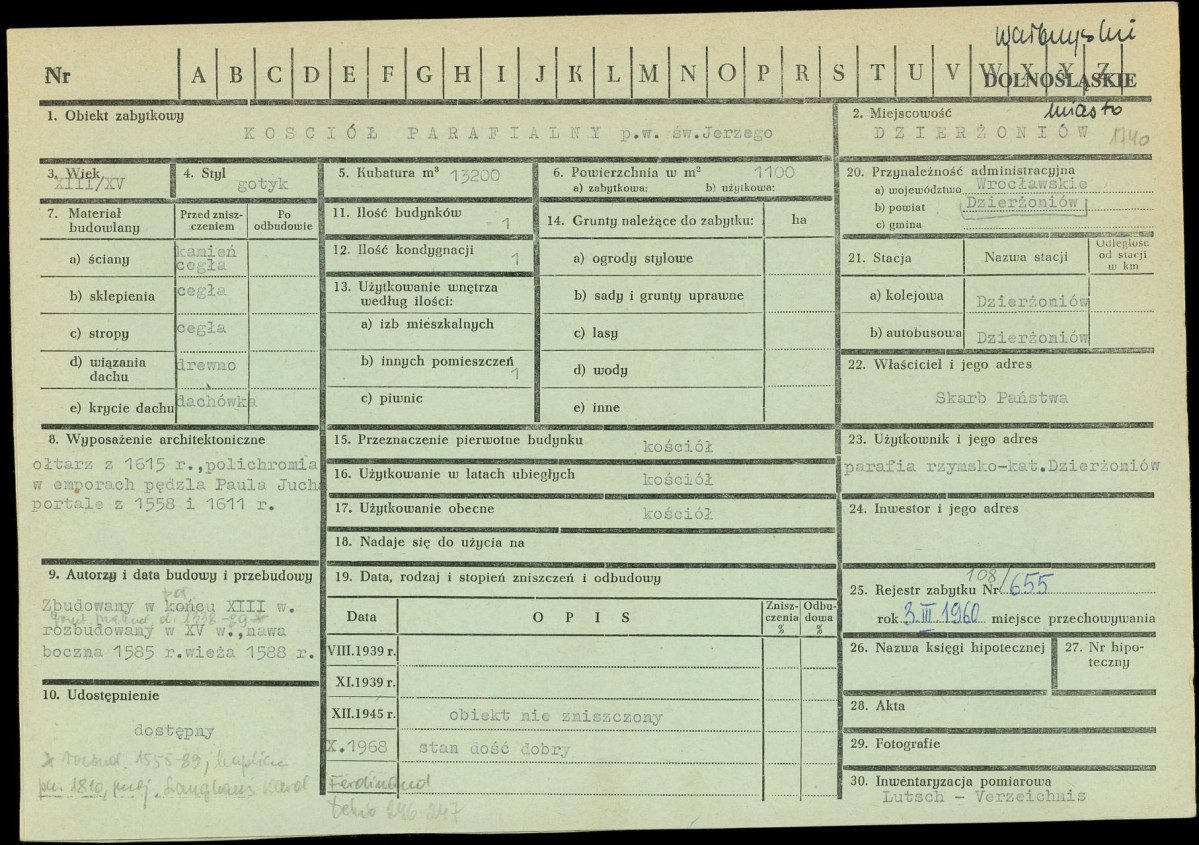 wałbrzyski
Nr A B C D E F G H I J K L M N O P R S T U V W X Y Z
DOLNOŚLĄSKIE
miasto
1. Obiekt zabytkowy
KOSCIÓŁ PARAFIALNY p.w. św.Jerzego
2. Miejscowość
DZIERŻONIÓW 1140
3. Wiek
XIII/XV
4. Styl
gotyk
5. Kubatura m³ 13200
6. Powierzchnia w m² 1100
a) zabytkowa: b) użytkowa:
7. Materiał budowlany
Przed zniszczeniem
Po odbudowie
a) ściany
kamień
cegła
b) sklepienia cegła
c) stropy cegła
d) wiązania dachu drewno
e) krycie dachu dachówka
8. Wyposażenie architektoniczne
ołtarz z 1615 r.,polichromia
w emporach pędzla Paula Juch
portale z 1558 i 1611 r.
9. Autorzy i data budowy i przebudowy
Zbudowany w końcu XIII w.
rozbudowany w XV w.,nawa
boczna 1585 r.wieża 1588 r.
10. Udostępnienie
dostępny
x rozbud. 1555-89, kaplica
pn. 1810, proj. Langhans Karol
Ferdinand
Dehio 246-247
11. Ilość budynków 1
12. Ilość kondygnacji 1
13. Użytkowanie wnętrza
według ilości:
a) izb mieszkalnych
b) innych pomieszczeń 1
c) piwnic
14. Grunty należące do zabytku: ha
a) ogrody stylowe
b) sady i grunty uprawne
c) lasy
d) wody
e) inne
15. Przeznaczenie pierwotne budynku kościół
16. Użytkowanie w latach ubiegłych kościół
17. Użytkowanie obecne kościół
18. Nadaje się do użycia na
19. Data, rodzaj i stopień zniszczeń i odbudowy
Data OPIS Zniszczenia % Odbudowa %
VIII.1939 r.
XI.1939 r.
XII.1945 r. obiekt nie zniszczony
X.1968 stan dość dobry
20. Przynależność administracyjna
a) województwo Wrocławskie
b) powiat Dzierżoniów
c) gmina
21. Stacja Nazwa stacji Odległość od stacji w km
a) kolejowa Dzierżoniów
b) autobusowa Dzierżoniów
22. Właściciel i jego adres
Skarb Państwa
23. Użytkownik i jego adres
parafia rzymsko-kat.Dzierżoniów
24. Inwestor i jego adres
25. Rejestr zabytku Nr 108/655
rok 3.III.1960 miejsce przechowywania
26. Nazwa księgi hipotecznej
27. Nr hipoteczny
28. Akta
29. Fotografie
30. Inwentaryzacja pomiarowa
Lutsch - Verzeichnis